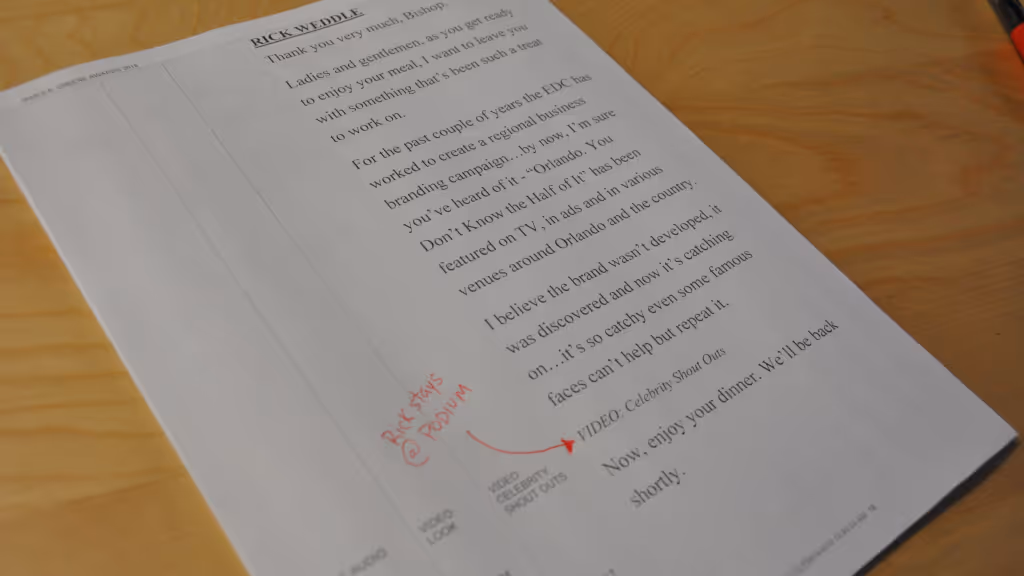 RICK WEDDLE
Thank you very much, Bishop.
Ladies and gentlemen, as you get ready
to enjoy your meal, I want to leave you
with something that's been such a treat
to work on.
For the past couple of years the EDC has
worked to create a regional business
branding campaign...by now, I'm sure
you've heard of it - “Orlando. You
Don't Know the Half of It” has been
featured on TV, in ads and in various
venues around Orlando and the country.
I believe the brand wasn't developed, it
was discovered and now it's catching
on...it's so catchy even some famous
faces can't help but repeat it.
Rick stays
@ PODIUM
VIDEO: Celebrity Shout Outs
VIDEO
CELEBRITY
SHOUT OUTS
Now, enjoy your dinner. We'll be back
shortly.
VIDEO:
LOOK
AUDIO